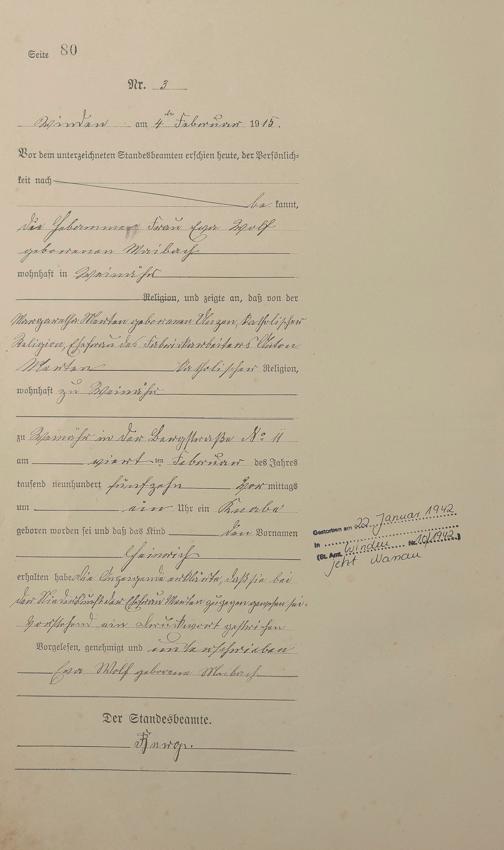 Seite 80
Nr. 3
Winden am 4ten Februar 1915.
Vor dem unterzeichneten Standesbeamten erschien heute, der Persönlich-
keit nach
be kannt,
die Hebamme Frau Eva Wolf
geborenen Maibach
wohnhaft in Weinähr
Religion, und zeigte an, daß von der
Margaretha Merten geborenen katholischer
Religion, Ehefrau des Fabrikarbeiters Anton
Merten katholischer Religion,
wohnhaft zu Weinähr
zu Weinähr in der Bergstraße No 11
am viert ten Februar des Jahres
tausend neunhundert fünfzehn Vor mittags
um ein Uhr ein Knabe
geboren worden sei und daß das Kind den Vornamen
Heinrich
erhalten habe. Die Anzeigende erklärte, daß sie bei
der Niederkunft der Ehefrau Merten zugegen gewesen sei.
Vorstehend ein Druckwort gestrichen
Vorgelesen, genehmigt und unterschrieben
Eva Wolf geborene Maibach
Der Standesbeamte.
Gestorben am 22. Januar 1942
in
(St. Amt Winden Nr. 10/1942.)
jetzt Nassau